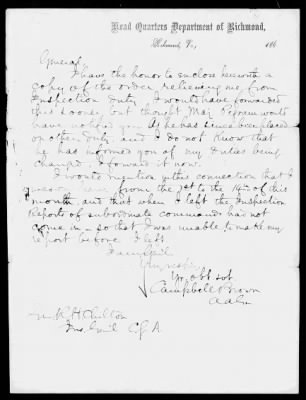 Head Quarters Department of Richmond,
Richmond, Va., 186
General,
I have the honor to enclose herewith a
copy of the order relieving me from
Inspection duty. I would have forwarded
this sooner but thought Maj. Pegram would
have informed you. As he has since been placed
on other duty and I do not know that
he has informed you of my duties being
changed, I forward it now.
I would mention in this connection that I
was on from the 1st to the 14th of this
month and that when I left the Inspection
Reports of subordinate commands had not
come in – so that I was unable to make my
report before I left.
I am, Genl.
Very resp.
Yr. obt. svt.
Campbell Brown
R. H. Chilton
Insp. Genl. C.S.A.